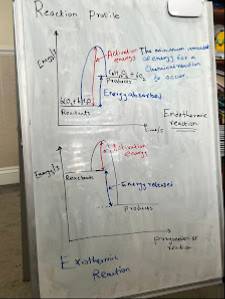 Reaction Profile
Energy/s
Activation energy
The minimum amount of energy for a chemical reaction to occur.
Products
Reactants
Energy absorbed
time/s
Endothermic reaction
Energy/s
Activation energy
Reactants
Energy released
Products
progression of reaction
Exothermic
Reaction